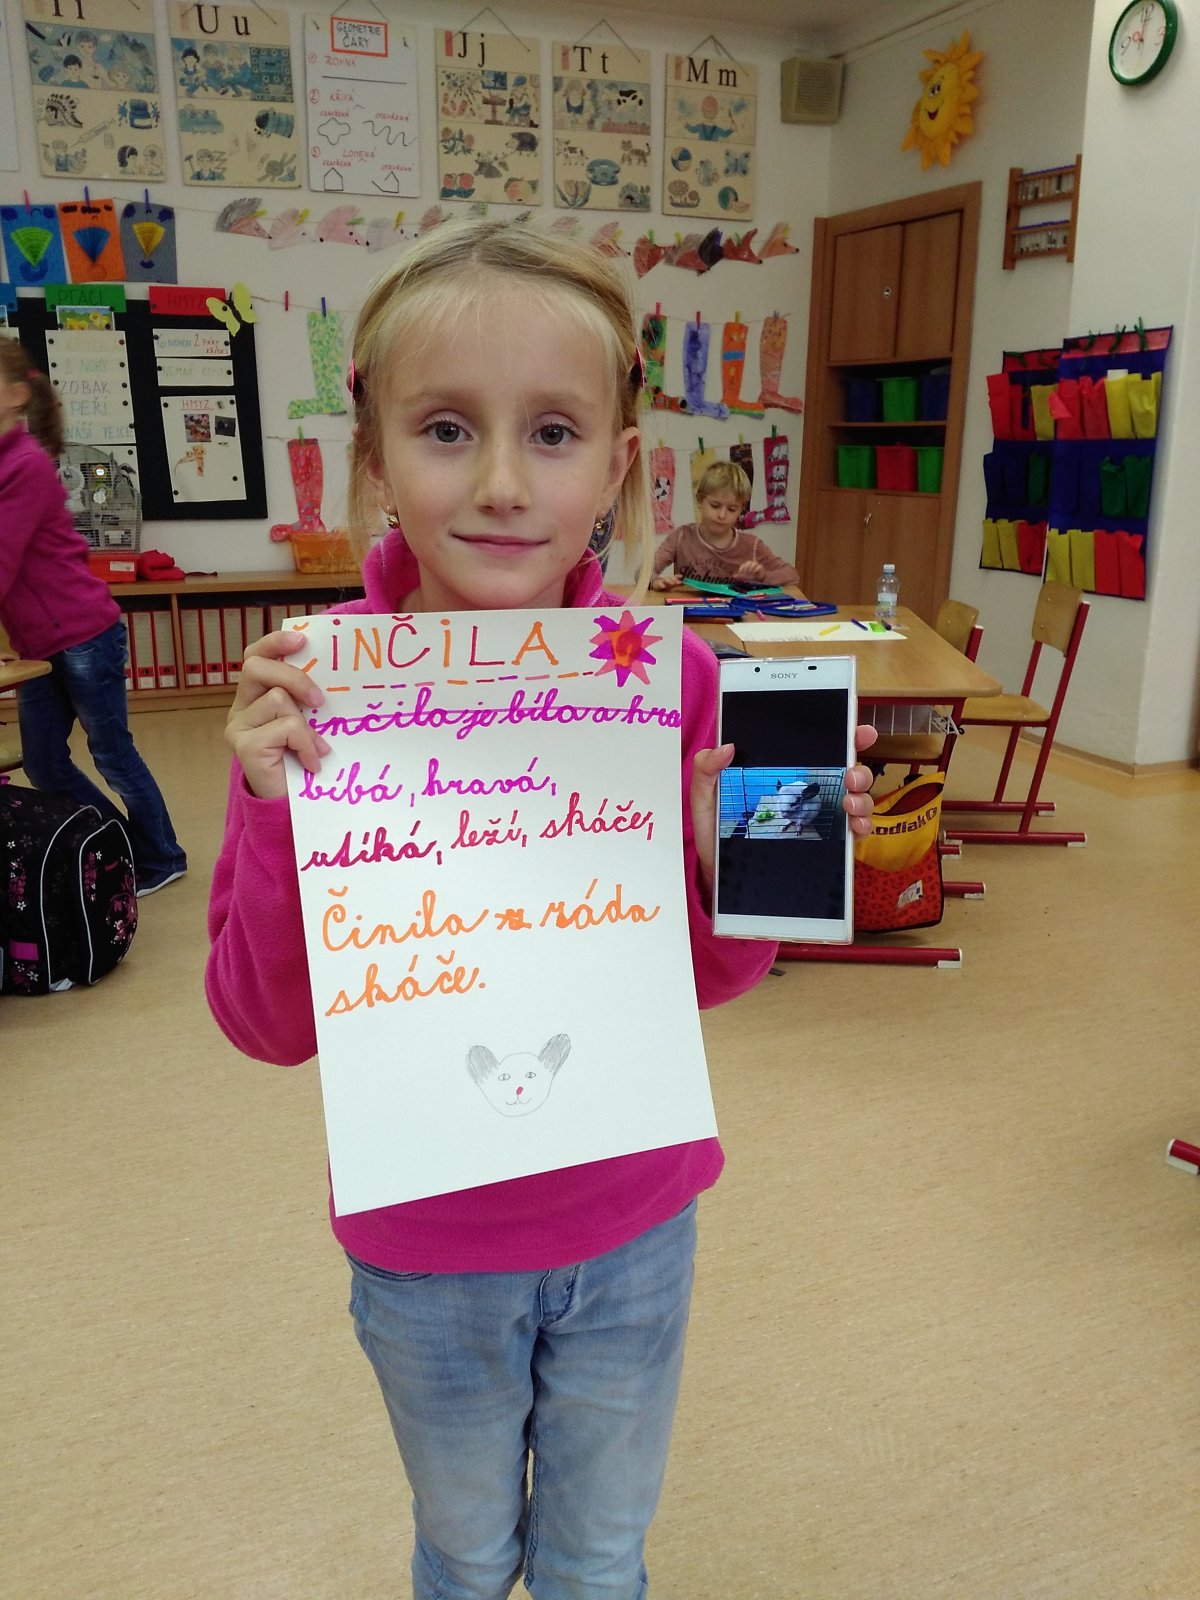 U u
GEOMETRIE
ČÁRY
ROVNÁ
KŘIVÁ
UZAVŘENÁ
OTEVŘENÁ
LOMENÁ
UZAVŘENÁ
OTEVŘENÁ
J j
T t
M m
PTÁCI
HMYZ
2 NOHY
ZOBÁK
PEŘÍ
6 NOHOU 2 PÁRY
KŘÍDEL
NEMAJÍ KOSTI
HMYZ
ČINČILA
inčila je bíla a hra
bíbá, hravá,
utíká, leží, skáče,
Činila ráda
skáče.
SONY